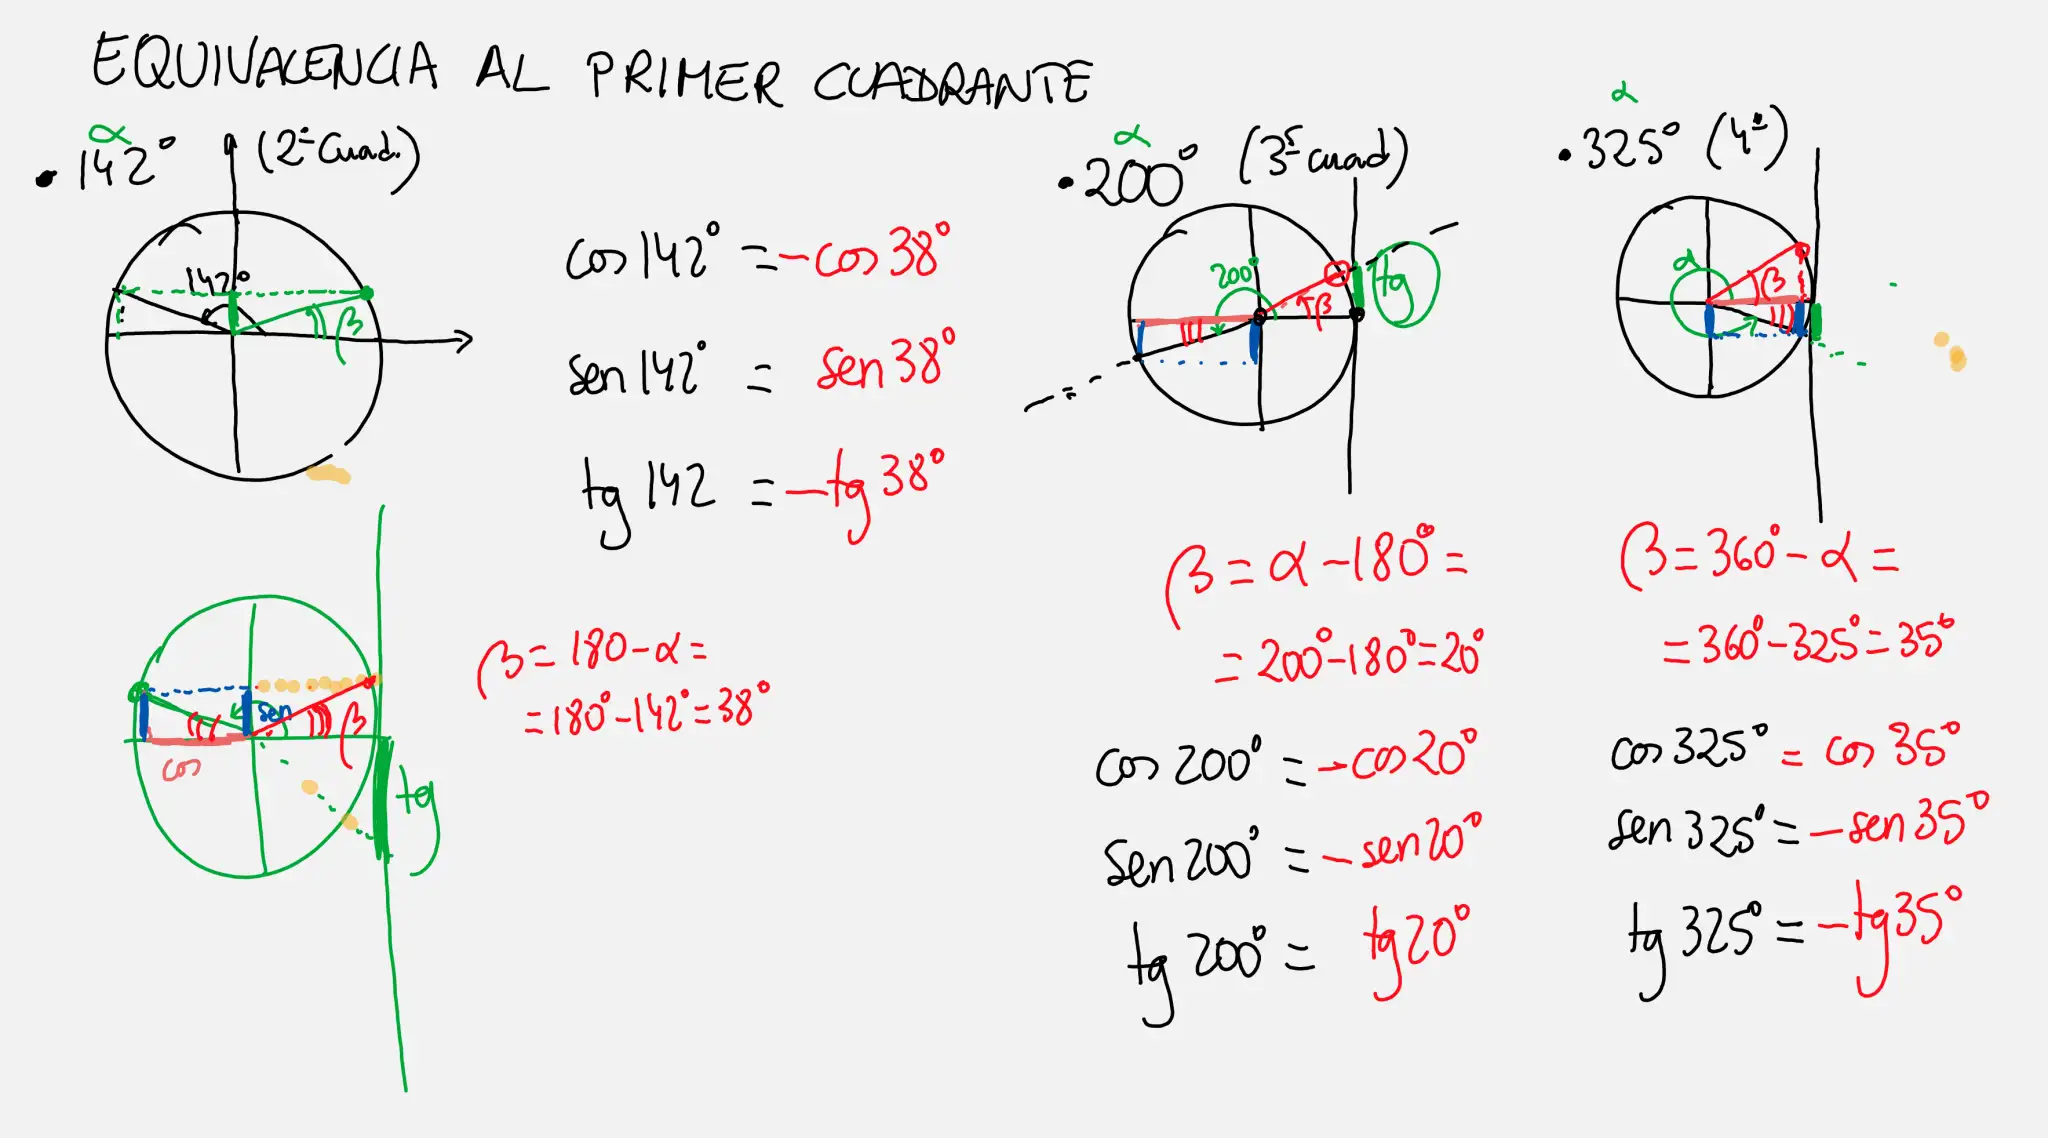 EQUIVALENCIA AL PRIMER CUADRANTE
α
• 142° (2º Cuad.)
142°
β
cos 142° = -cos 38°
sen 142° = sen 38°
tg 142 = -tg 38°
sen
β
cos
tg
β = 180 - α =
= 180° - 142° = 38°
α
• 200° (3º cuad)
200°
β
tg
β = α - 180° =
= 200° - 180° = 20°
cos 200° = -cos 20°
sen 200° = -sen 20°
tg 200° = tg 20°
α
• 325° (4º)
α
β
β = 360° - α =
= 360° - 325° = 35°
cos 325° = cos 35°
sen 325° = -sen 35°
tg 325° = -tg 35°